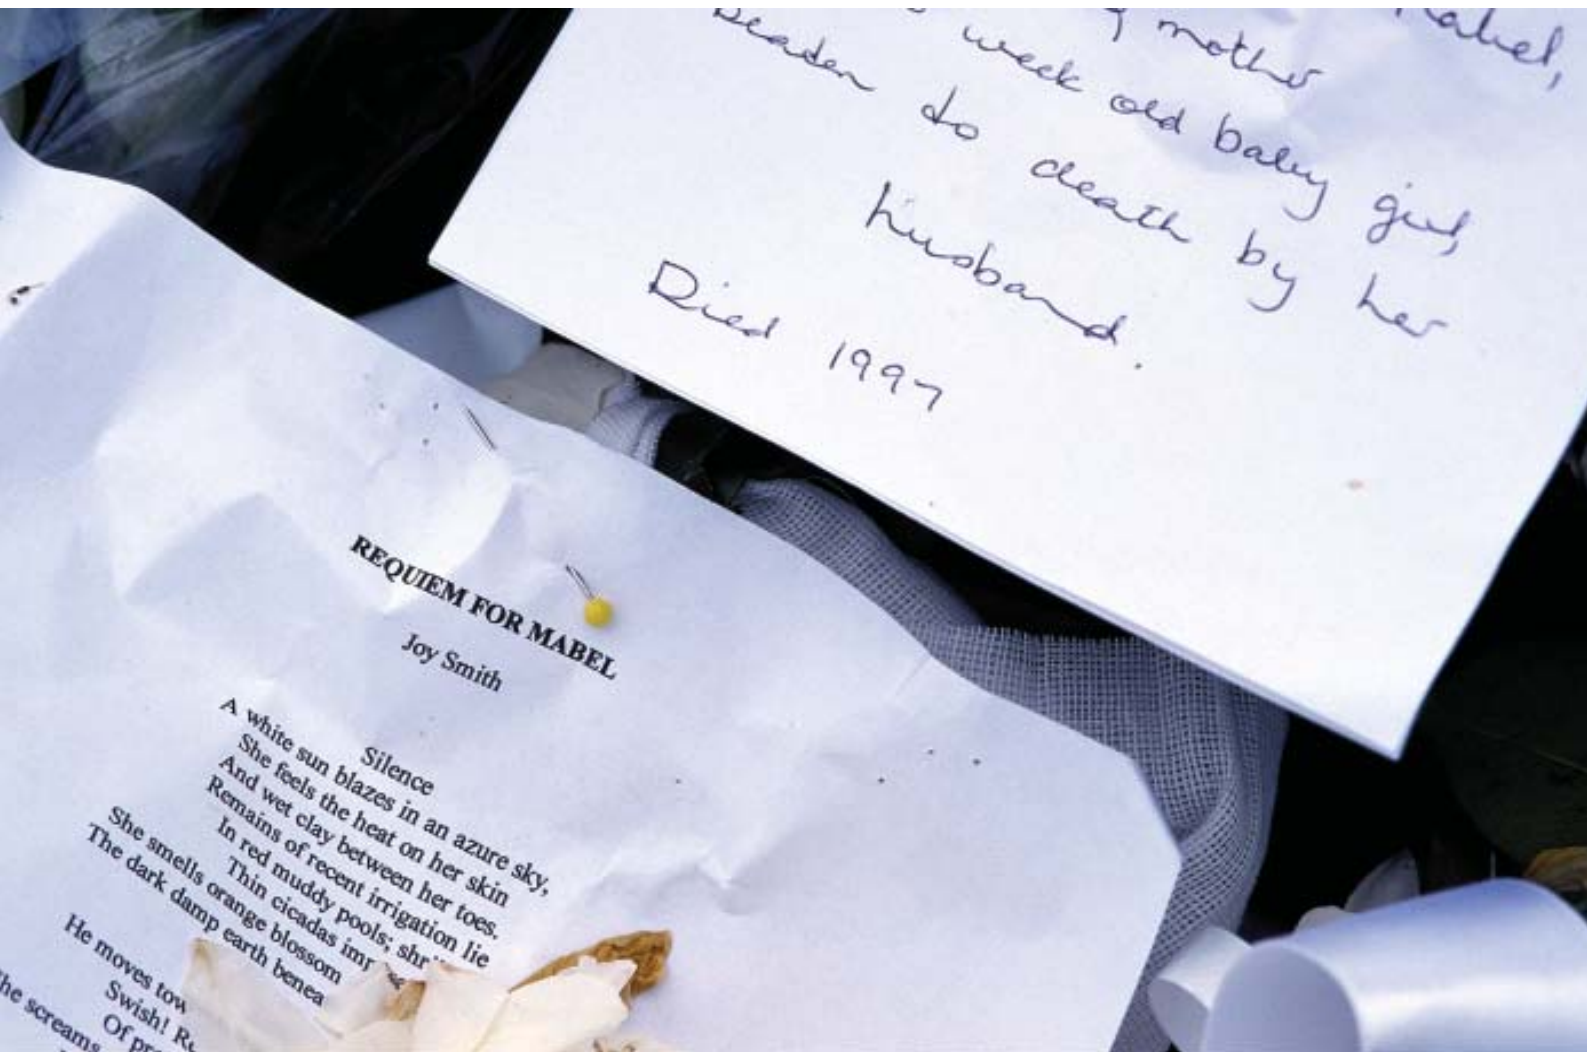 Mabel,
mother
week old baby girl,
Beaten to death by her
husband.
Died 1997
REQUIEM FOR MABEL
Joy Smith
Silence
A white sun blazes in an azure sky,
She feels the heat on her skin
And wet clay between her toes.
Remains of recent irrigation lie
In red muddy pools; shr
Thin cicadas imp
She smells orange blossom
The dark damp earth benea
He moves tow
Swish! R
Of pr
he screams